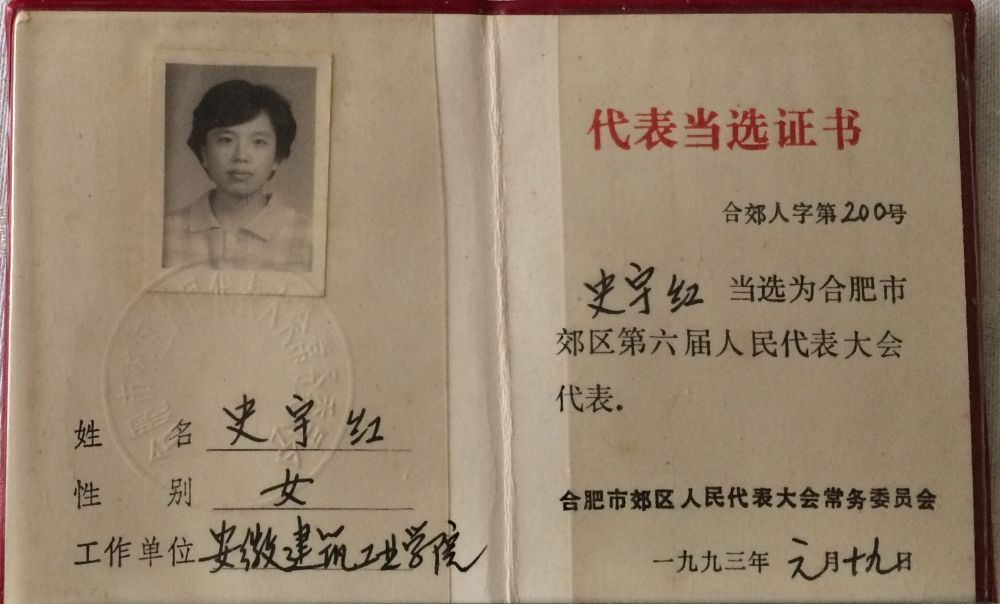 姓 名 史宇红
性 别 女
工作单位 安徽建筑工业学院
代表当选证书
合郊人字第200号
史宇红 当选为合肥市
郊区第六届人民代表大会
代表.
合肥市郊区人民代表大会常务委员会
一九九三年元月十九日